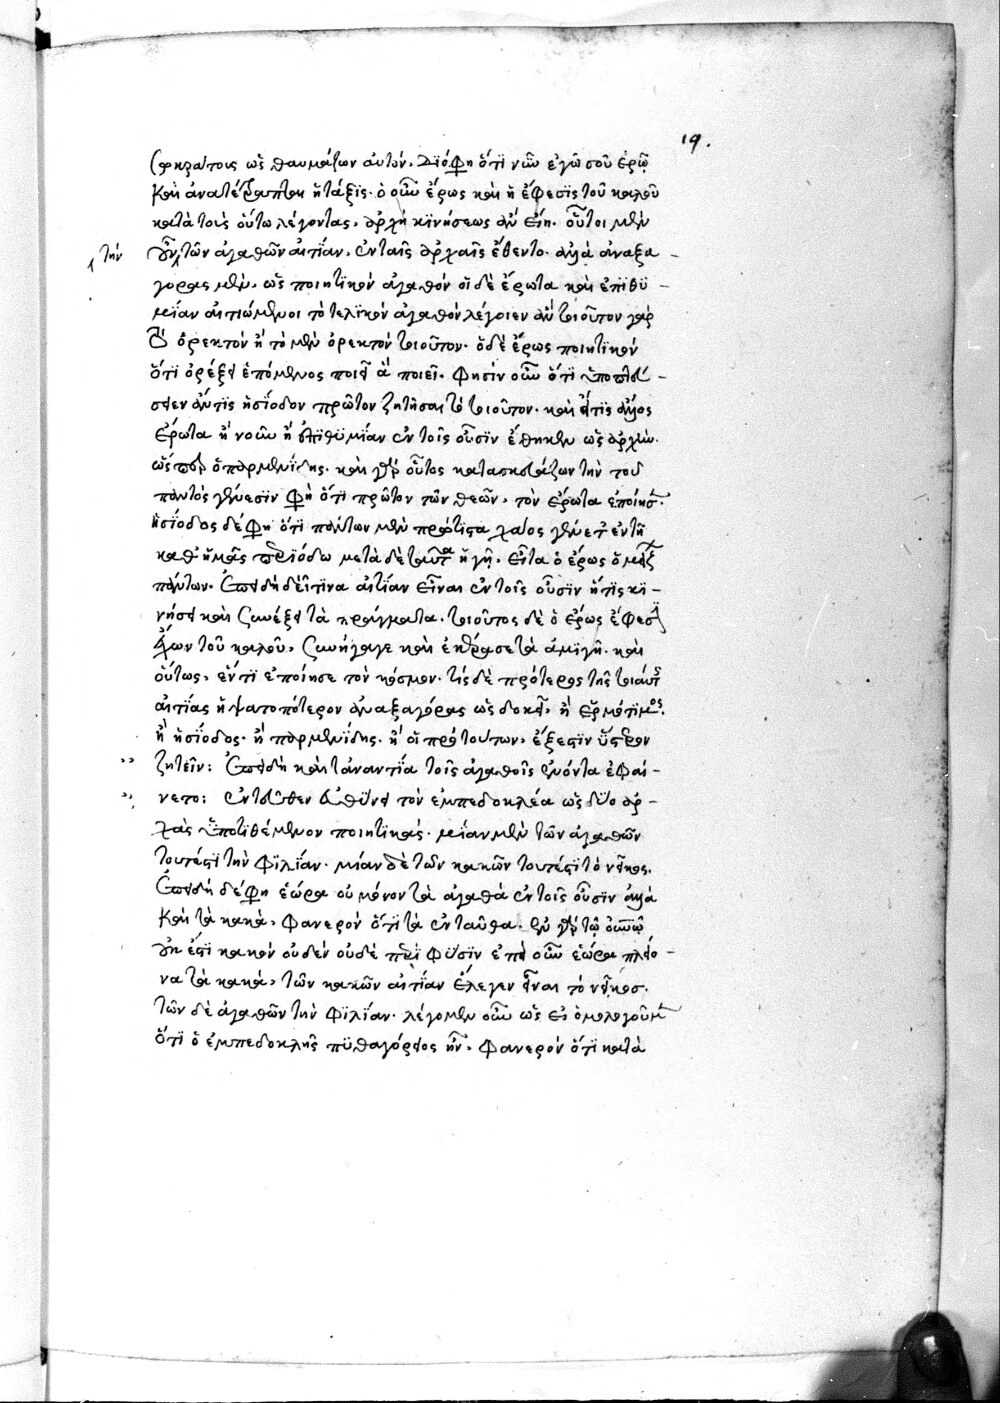 19.
σωκράτους ὡς θαυμάζων αὐτόν. διό φη ὅτι νῦν ἐγὼ σοῦ ἐρῶ
καὶ ἀνατέτραπται ἡ τάξις. ὁ οὖν ἔρως καὶ ἡ ἔφεσϊς τοῦ καλοῦ
κατὰ τοὺς οὕτω λέγοντας, ἀρχὴ κϊνήσεως ἂν εἴη. οὗτοι μὲν
τὴν
οὖν τῶν ἀγαθῶν αἰτίαν, ἐν ταῖς ἀρχαῖς ἔθεντο. ἀλλὰ ἀναξα -
γορας μὲν, ὡς ποιητϊκὸν ἀγαθὸν οἱ δὲ ἔρωτα καὶ ἐπϊθϋ -
μΐαν αἰτιώμενοι τὸ τελϊκὸν ἀγαθὸν λέγοιεν ἂν τοιοῦτον γὰρ
τὸ ὀρεκτόν ἢ τὸ μὲν ὀρεκτὸν τοιοῦτον. ὁ δὲ ἔρως ποιητϊκὸν
ὅτϊ ὀρέξει ἑπόμενος ποιεῖ ἃ ποιεῖ. φησὶν οὖν ὅτϊ ὑποπτεύ -
σειεν ἄν τις ἡσΐοδον πρῶτον ζητῆσαι τὸ τοιοῦτον. καὶ εἴ τϊς ἄλλος
ἔρωτα ἢ νοῦν ἢ ἐπϊθϋμΐαν ἐν τοῖς οὖσϊν ἔθηκεν ὡς ἀρχὴν.
ὥσπερ ὁ παρμενΐδης. καὶ γὰρ οὗτος κατασκευάζων τὴν τοῦ
παντὸς γένεσϊν φη ὅτϊ πρῶτον τῶν θεῶν, τὸν ἔρωτα ἐποίησ.
ἡσΐοδος δέ φη ὅτι πάντων μὲν πρώτιστα χάος γένετ ἐν τῇ
καθ ἡμᾶς περϊόδω μετὰ δὲ ταῦτα ἡ γῆ. εἶτα ὁ ἔρως ὁ μεταξ
πάντων. ἐπειδὴ δεῖ τϊνα αἰτΐαν εἶναι ἐν τοῖς οὖσϊν ἥτϊς κϊ -
νήσει καὶ συνέξει τὰ πράγματα. τοιοῦτος δὲ ὁ ἔρως ἐφεσ
τοῦ καλοῦ, συνήγαγε καὶ ἐκέρασε τὰ ἀμϊγῆ. καὶ
οὕτως, ἐποίησε τὸν κόσμον. τίς δὲ πρότερος τῆς τοιαύτ
αἰτΐας ἥψατο πότερον ἀναξαγόρας ὡς δοκεῖ, ἢ ἑρμότϊμος.
ἢ ἡσΐοδος. ἢ παρμενΐδης. ἢ οἱ πρὸ τούτων, ἔξεστϊν ὕστερον
ζητεῖν: ἐπειδὴ καὶ τἀναντΐα τοῖς ἀγαθοῖς ἐνόντα ἐφαί -
νετο: ἐντεῦθεν εὐθύνει τὸν ἐμπεδοκλέα ὡς δύο ἀρ -
χὰς ὑποτϊθέμενον ποιητϊκὰς. μΐαν μὲν τῶν ἀγαθῶν
τουτέστϊ τὴν φϊλΐαν. μίαν δὲ τῶν κακῶν τουτέστϊ τὸ νεῖκος.
ἐπειδὴ δέ φη ἑώρα οὐ μόνον τὰ ἀγαθὰ ἐν τοῖς οὖσϊν ἀλλὰ
καὶ τὰ κακὰ, φανερὸν ὅτϊ τὰ ἐνταῦθα. ἐν γὰρ τῷ
οὐκ ἔστϊ κακὸν οὐδὲν οὐδὲ παρὰ φύσϊν ἐπεὶ οὖν ἑώρα πλεΐο -
να τὰ κακὰ, τῶν κακῶν αἰτΐαν ἔλεγεν εἶναι τὸ νεῖκος.
τῶν δὲ ἀγαθῶν τὴν φϊλΐαν. λέγομεν οὖν ὡς εἰ ὁμολογούμεν
ὅτϊ ὁ ἐμπεδοκλῆς πϋθαγόρειος ἦν. φανερὸν ὅτϊ κατὰ